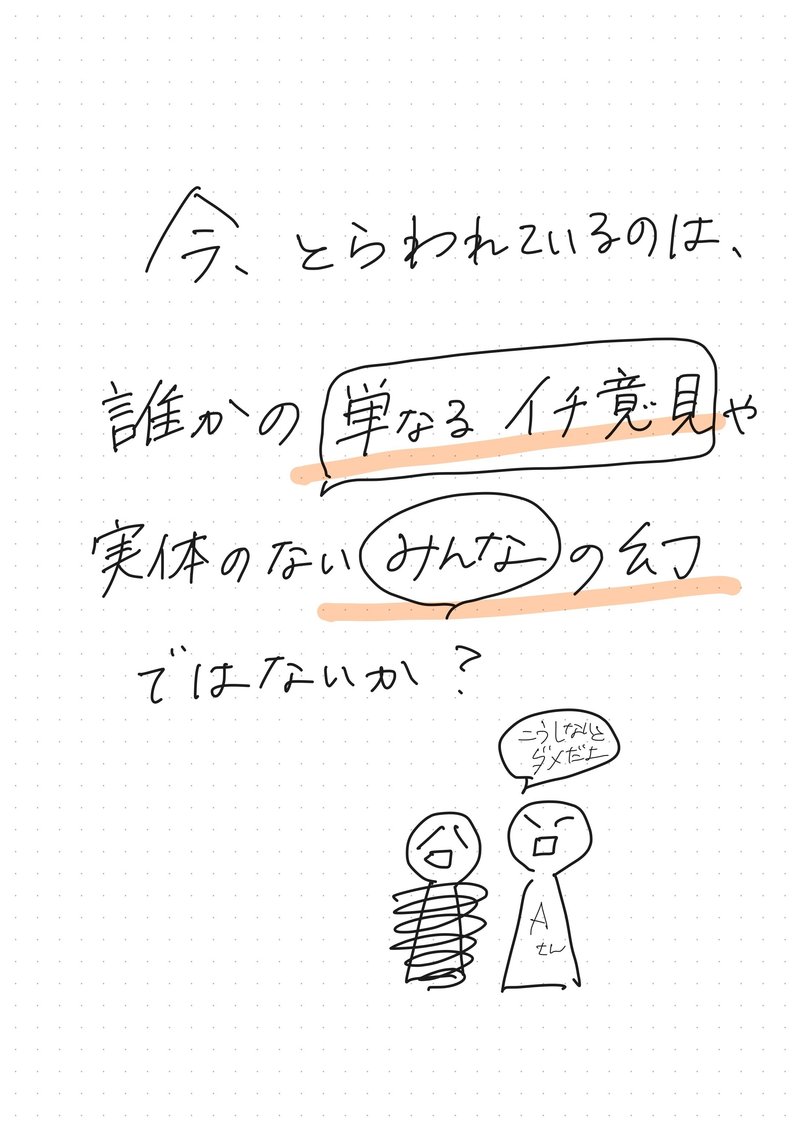 今、とらわれているのは、
誰かの単なるイチ意見や
実体のないみんなの幻
ではないか？
こうしないと
ダメだよ
A
さん